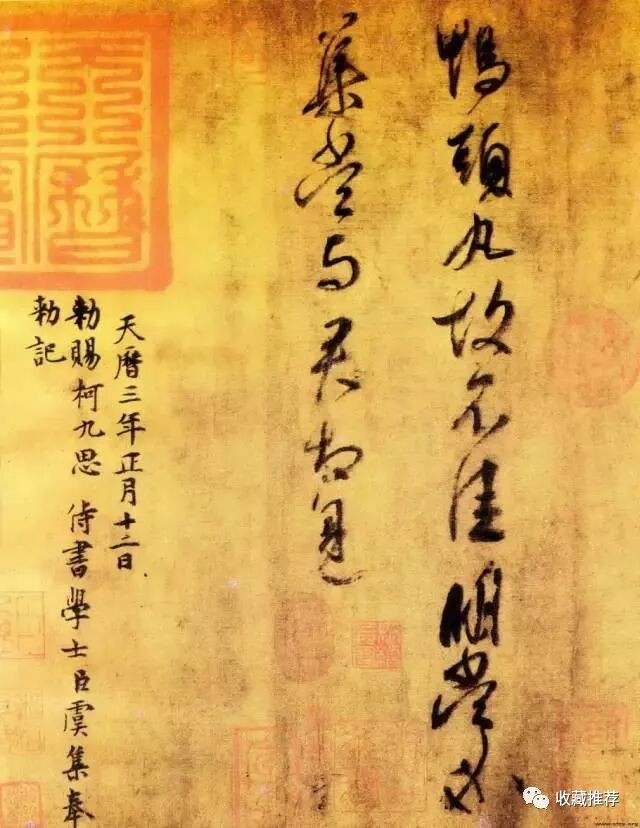 鴨頭丸故不佳明當必
集當与君相見
天曆三年正月十二日
勅賜柯九思 侍書學士臣虞集奉
勅記
天曆
收藏推荐